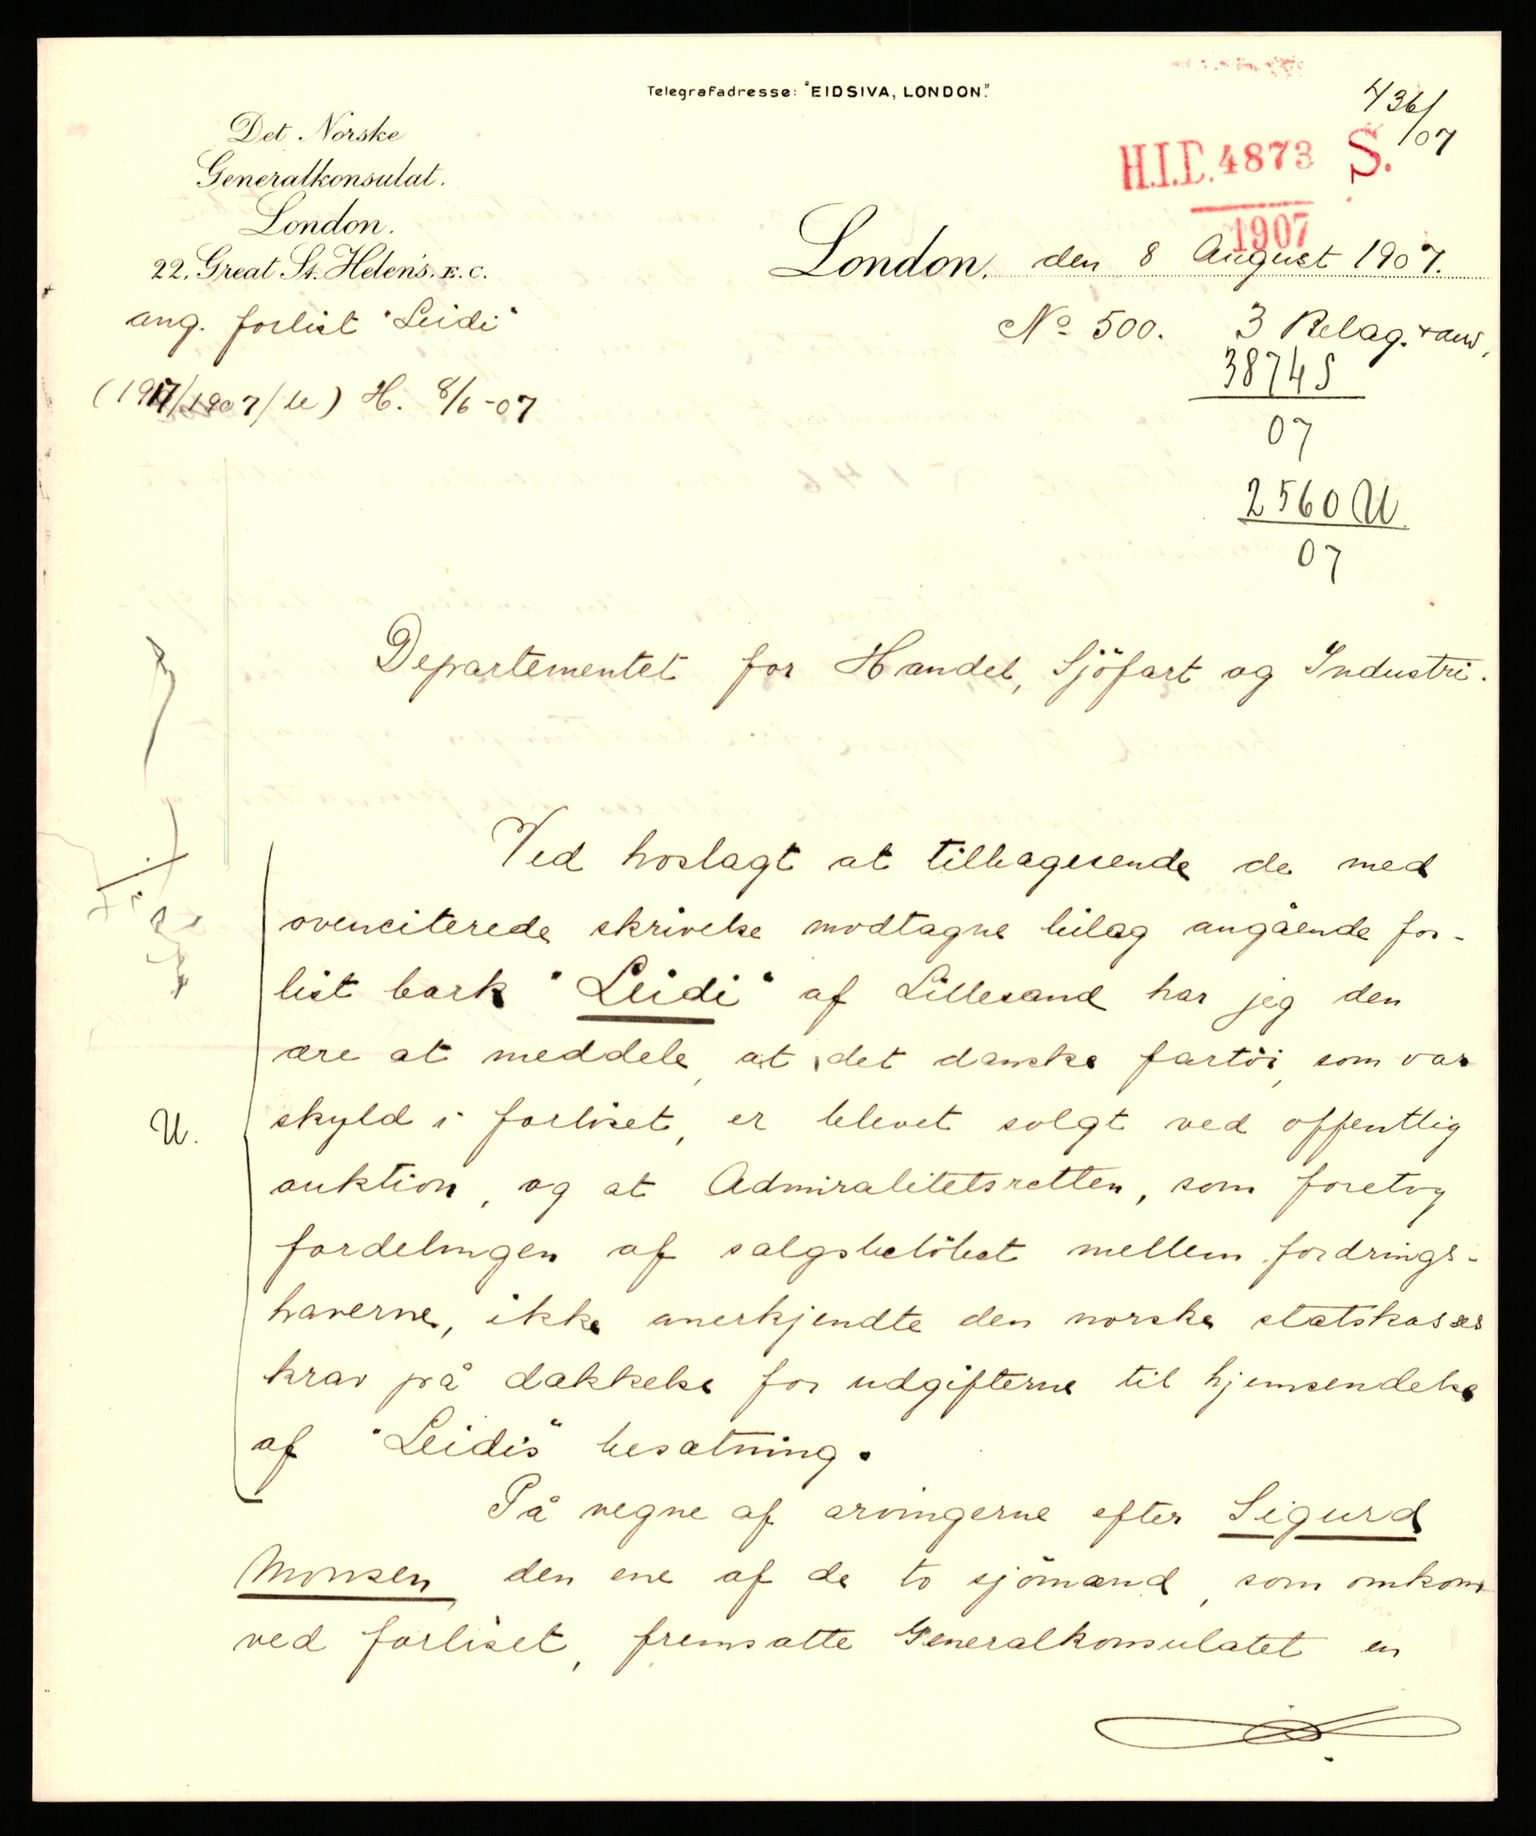 Telegrafadresse: "EIDSIVA, LONDON."
Det Norske
Generalkonsulat.
London.
22, Great St. Helen's. E.C.
436/07
H.I.D. 4873 S.
1907
London, den 8 August 1907.
ang. forlist "Leidi"
No 500. 3 Bilag.
3874 S
07
(1907/U) H. 8/6-07
2560 U
07
Departementet for Handel, Sjöfart og Industri.
Ved hoslagt at tilbagesende de med
ovenciterede skrivelse modtagne bilag angående for-
list bark "Leidi" af Lillesand har jeg den
ære at meddele, at det danske fartöi, som var
U.
skyld i forliset, er blevet solgt ved offentlig
auktion, og at Admiralitetsretten, som foretog
fordelingen af salgsbelöbet mellem fordrings-
haverne, ikke anerkjendte den norske statskasses
krav på dækkelse for udgifterne til hjemsendelse
af "Leidis" besætning.
På vegne af arvingerne efter Sigurd
Monsen, den ene af de to sjömænd, som omkom
ved forliset, fremsatte Generalkonsulatet en